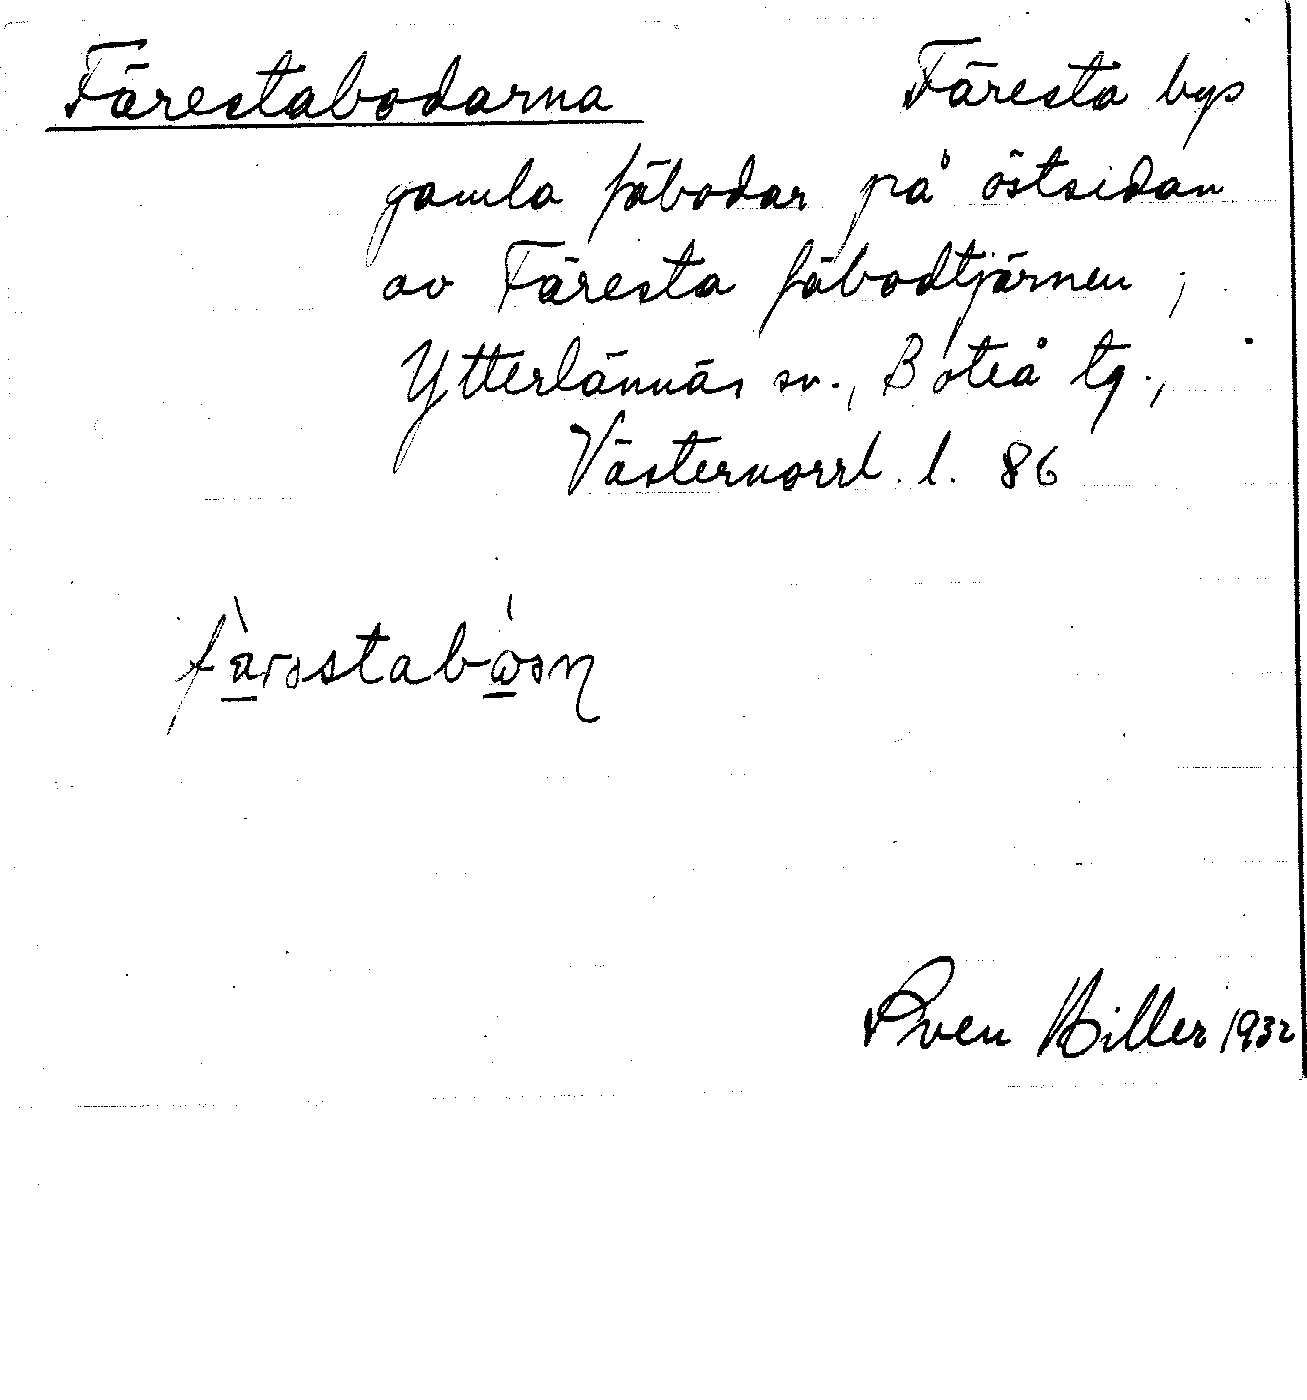 Färestabodarna Färesta bys
gamla fäbodar på östsidan
av Färesta fäbodtjärnen ;
Ytterlännäs sn., Boteå tg.,
Västernorrl. l. 86
Sven Hiller 1932